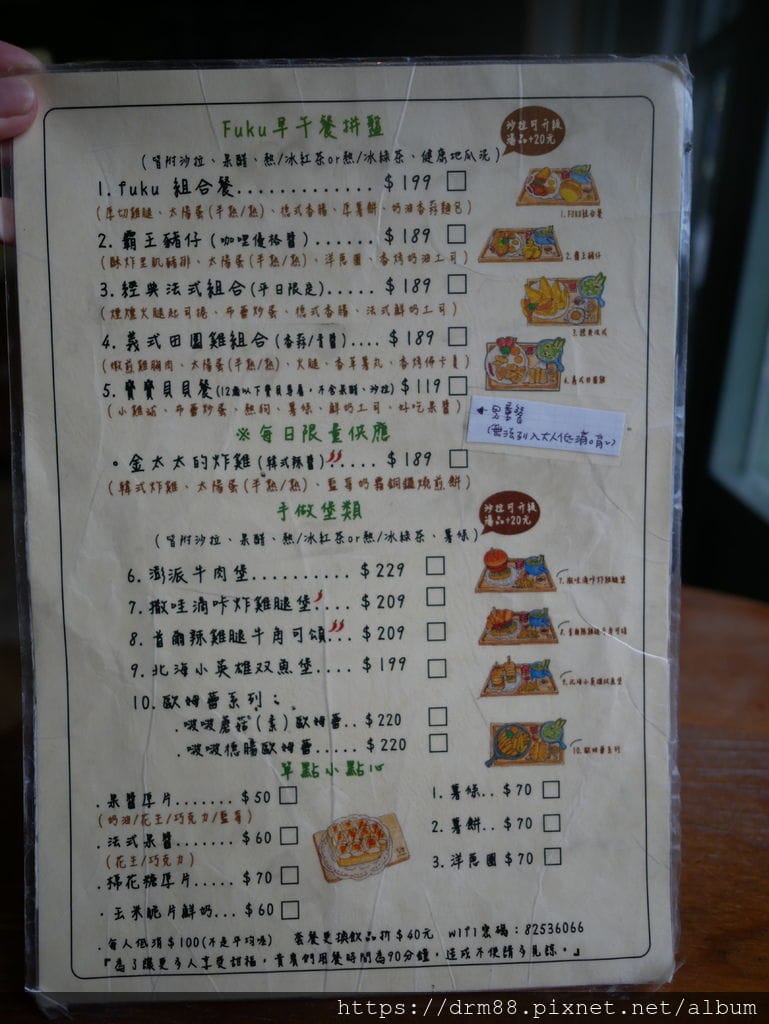 Fuku早午餐拼盤
沙拉可升級
湯品+20元
(皆附沙拉、果醋、熱/冰紅茶or熱/冰綠茶、健康地瓜泥)
1. fuku 組合餐............. $199 □
(厚切雞腿、太陽蛋(半熟/熟)、德式香腸、厚薯餅、奶油香蒜麵包)
1. FUKU組合餐
2. 霸王豬仔(咖哩優格醬)...... $189 □
(酥炸里肌豬排、太陽蛋(半熟/熟)、洋蔥圈、香烤奶油土司)
2. 霸王豬仔
3. 經典法式組合(平日限定)..... $189 □
(煙燻火腿起司捲、布蕾炒蛋、德式香腸、法式鮮奶土司)
3. 經典法式
4. 義式田園雞組合(香蒜/青醬).... $189 □
(嫩煎雞胸肉、太陽蛋(半熟/熟)、火腿、香草薯丸、香烤佛卡夏)
4. 義式田園雞
5. 寶寶貝貝餐(12歲以下寶貝專屬,不含果醋、沙拉) $119 □
(小雞球、布蕾炒蛋、熱狗、薯條、鮮奶土司、好吃果醬)
←兒童餐
(無法列入大人低消唷~)
※每日限量供應
。金太太的炸雞(韓式辣醬)... $189 □
(韓式炸雞、太陽蛋(半熟/熟)、藍莓奶霜銅鑼燒煎餅)
手做堡類
沙拉可升級
湯品+20元
(皆附沙拉、果醋、熱/冰紅茶or熱/冰綠茶、薯條)
6. 澎派牛肉堡.......... $229 □
7. 撒哇滴咔炸雞腿堡.... $209 □
7. 撒哇滴咔炸雞腿堡
8. 首爾辣雞腿牛角可頌... $209 □
8. 首爾辣雞腿牛角可頌
9. 北海小英雄双魚堡.... $199 □
9. 北海小英雄双魚堡
10. 歐姆蕾系列:
.啵啵蘑菇(素)歐姆蕾.. $220 □
.啵啵德腸歐姆蕾..... $220 □
10. 歐姆蕾系列
單點小點心
.果醬厚片....... $50 □
(奶油/花生/巧克力/藍莓)
.法式果醬....... $60 □
(花生/巧克力)
.棉花糖厚片..... $70 □
.玉米脆片鮮奶... $60 □
1. 薯條.. $70 □
2. 薯餅.. $70 □
3. 洋蔥圈 $70 □
.每人低消$100(不是平均唷) 套餐更換飲品折$40元 wifi密碼:82536066
『為了讓更多人享受甜福,貴賓們用餐時間為90分鐘,造成不便請多見諒。』
https://drm88.pixnet.net/album